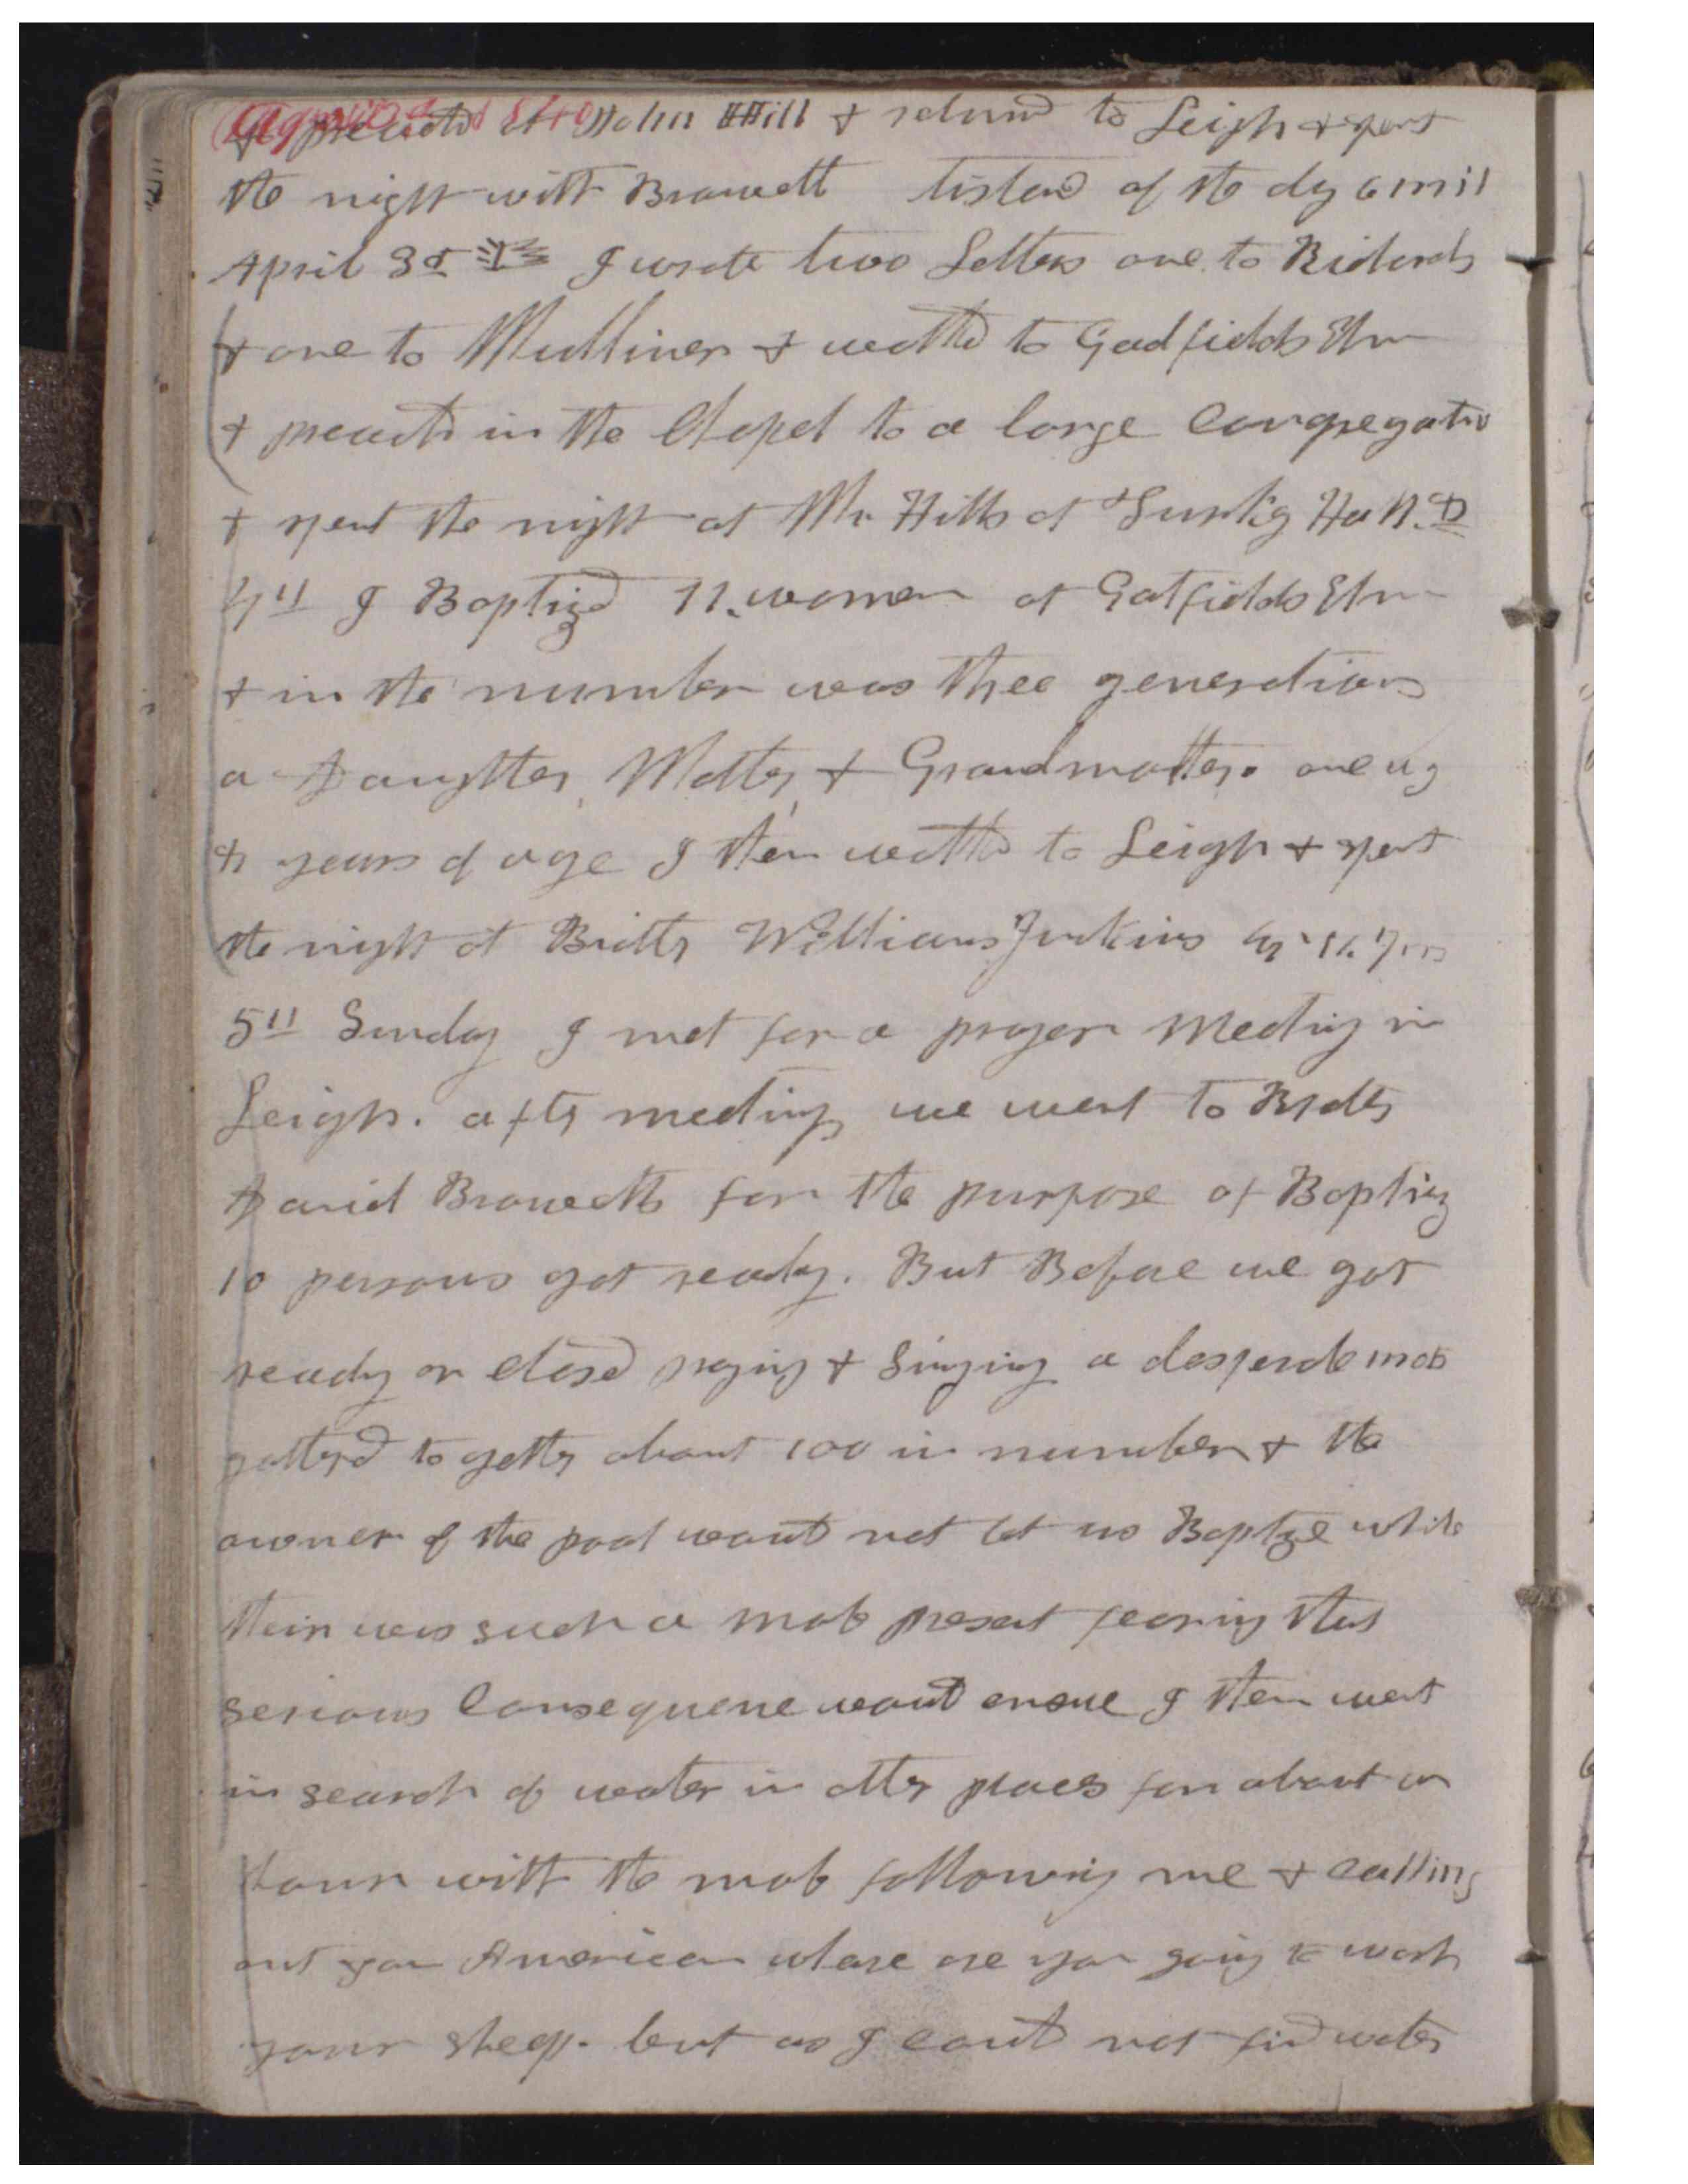 & preachd at Nolin Hill & returnd to Leigh & spent
the night with Browett distand of the dy 6 mil
April 3d I wrote two Letters one to Richards
& one to Mulliner & walkd to Gadfields Elm
& preachd in the Chapel to a large Congregatio
& spent the night at Mr Hills at Turkey Hall. D
4th I Baptized 11. women at Gatfields Elm
& in the number was three generations
a Daughter, Mother, & Grandmother. one
years of age I then walkd to Leigh & spent
the night at Brother Williams Jenkins
5th Sunday I met for a prayer Meeting in
Leigh. after meeting we went to Brother
David Browetts for the purpose of Baptizing
10 persons got ready. But Before we got
ready or closed praying & singing a desperate mob
gatherd together about 100 in number & the
owner of the pool would not let us Baptize while
their was such a mob present fearing that
serious Consequence would ensue I then went
in search of water in other places for about an
hour with the mob following me & calling
out you American whare are you going to wash
your sheep. but as I could not find water